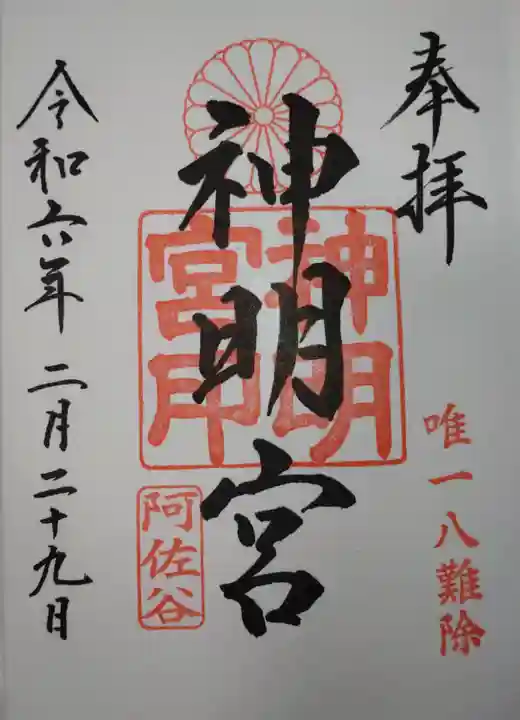 奉拝
唯一八難除
神明宮
神明
宮印
阿佐谷
令和六年二月二十九日